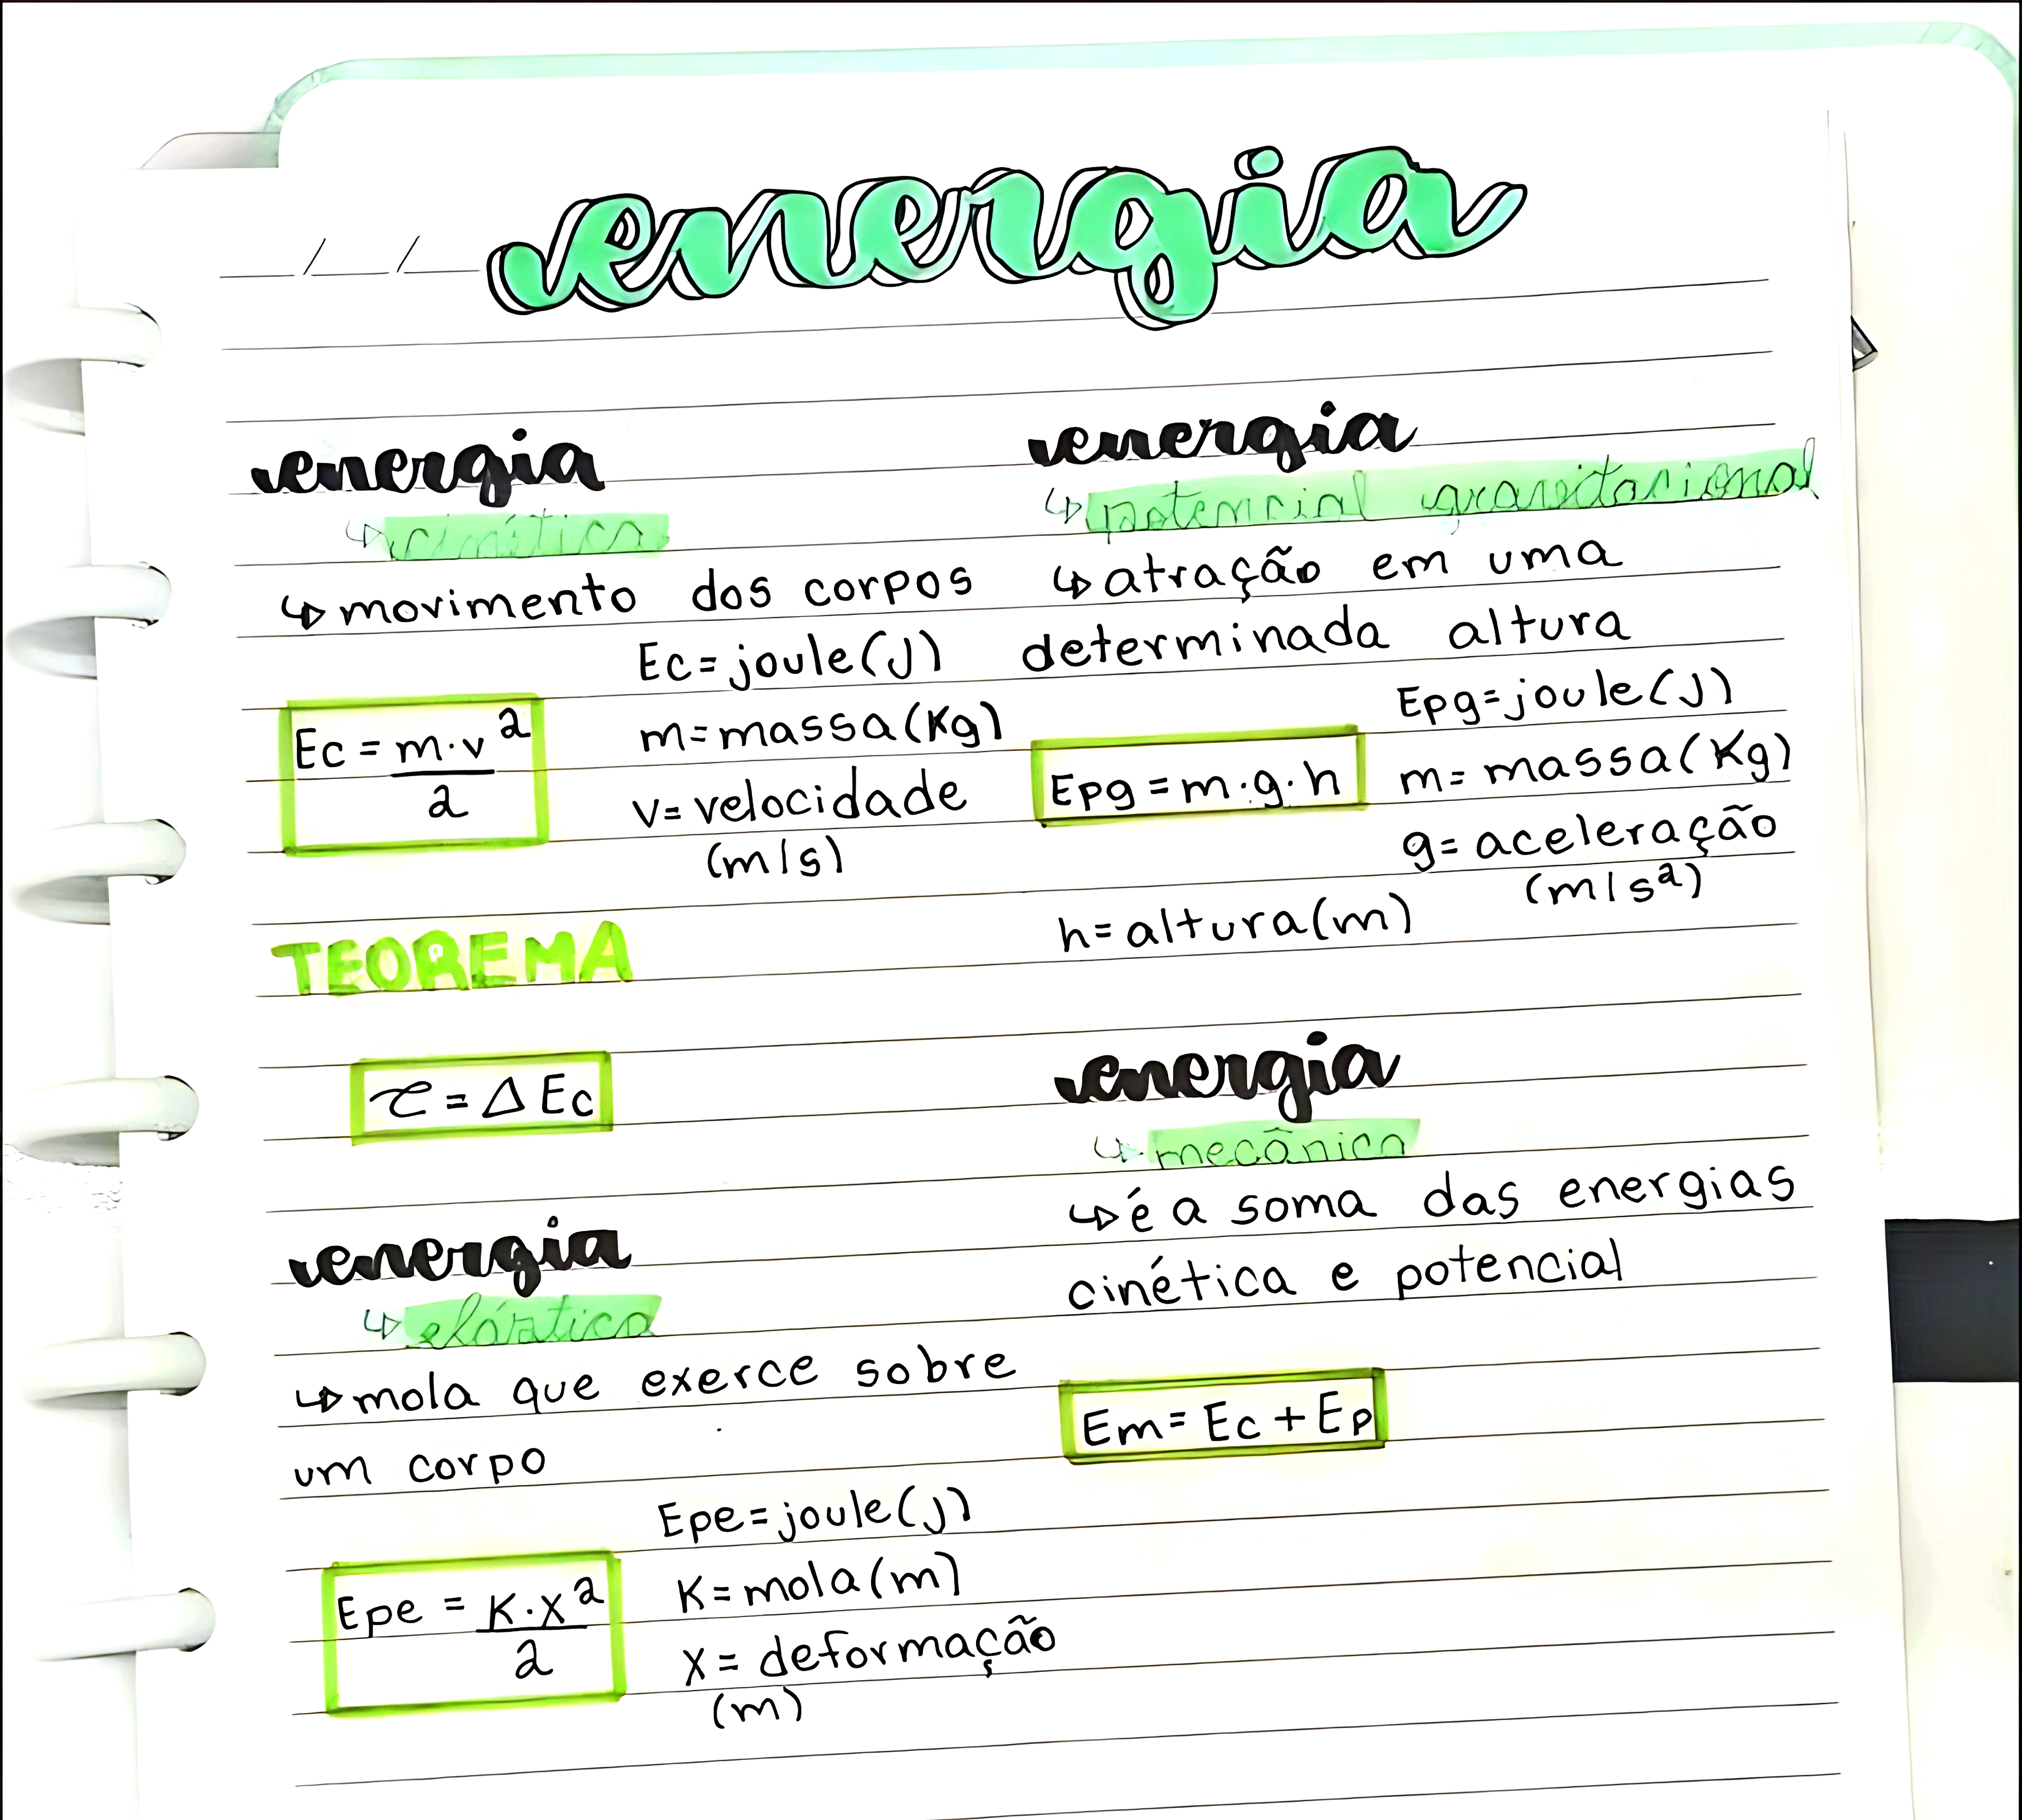 energia
energia
↳ cinética
↳ movimento dos corpos
Ec = joule (J)
Ec = m·v²/2
m = massa (Kg)
v = velocidade
(m/s)
TEOREMA
τ = Δ Ec
energia
↳ elástica
↳ mola que exerce sobre
um corpo
Epe = joule (J)
Epe = K·X²/2
K = mola (m)
X = deformação
(m)
energia
↳ potencial gravitacional
↳ atração em uma
determinada altura
Epg = joule (J)
Epg = m·g·h
m = massa (Kg)
g = aceleração
(m/s²)
h = altura (m)
energia
↳ mecânica
↳ é a soma das energias
cinética e potencial
Em = Ec + Ep